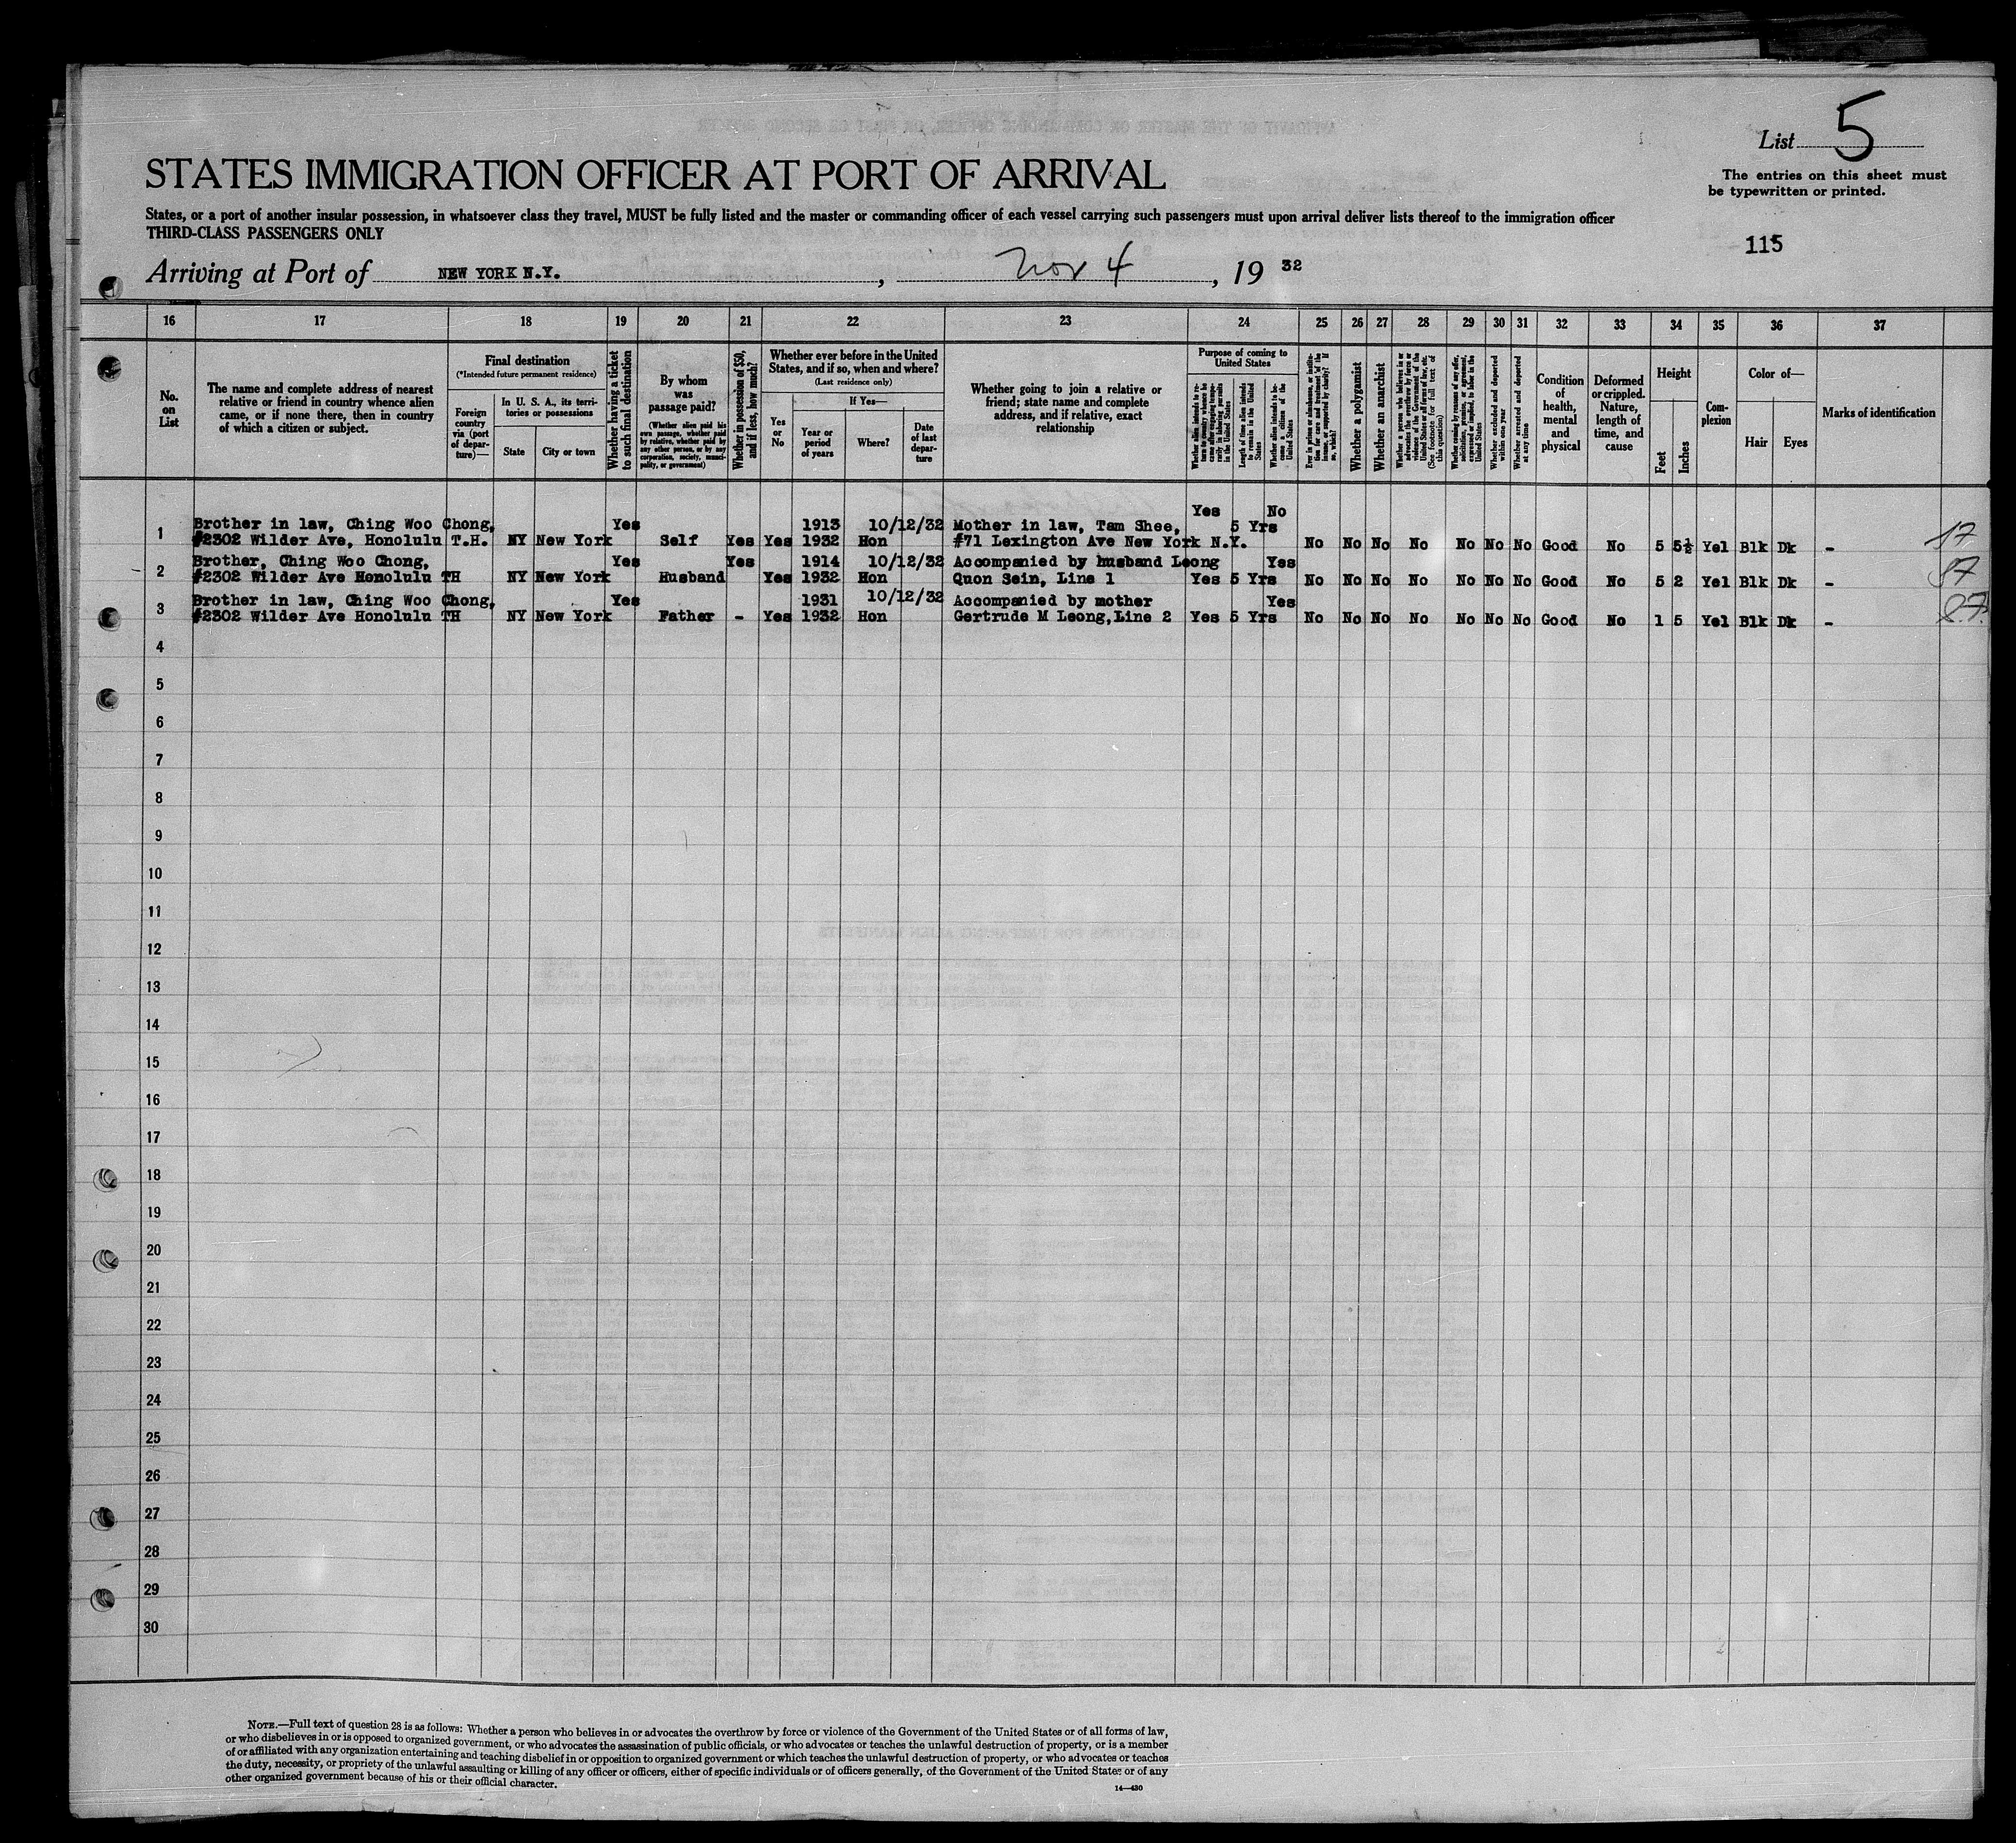 List 5
The entries on this sheet must
be typewritten or printed.
STATES IMMIGRATION OFFICER AT PORT OF ARRIVAL
States, or a port of another insular possession, in whatsoever class they travel, MUST be fully listed and the master or commanding officer of each vessel carrying such passengers must upon arrival deliver lists thereof to the immigration officer
THIRD-CLASS PASSENGERS ONLY
115
Arriving at Port of NEW YORK N.Y. , Nov 4 , 19 32
16 17 18 19 20 21 22 23 24 25 26 27 28 29 30 31 32 33 34 35 36 37
No. on List
The name and complete address of nearest
relative or friend in country whence alien
came, or if none there, then in country
of which a citizen or subject.
Final destination
(*Intended future permanent residence)
Foreign country via (port of departure)—
In U. S. A., its territories or possessions
State
City or town
Whether having a ticket to such final destination
By whom was passage paid?
(Whether alien paid his own passage, whether paid by relative, whether paid by any other person, or by any corporation, society, municipality, or government)
Whether in possession of $50, and if less, how much?
Whether ever before in the United
States, and if so, when and where?
(Last residence only)
Yes or No
If Yes—
Year or period of years
Where?
Date of last departure
Whether going to join a relative or
friend; state name and complete
address, and if relative, exact
relationship
Purpose of coming to United States
Length of time alien intends to remain in the United States
Whether alien intends to become a citizen of the United States
Whether a polygamist
Whether an anarchist
Whether excluded and deported within one year
Whether arrested and deported at any time
Condition of health, mental and physical
Deformed or crippled. Nature, length of time, and cause
Height
Feet
Inches
Complexion
Color of—
Hair
Eyes
Marks of identification
1 Brother in law, Ching Woo Chong, Yes 1913 10/12/32 Mother in law, Tam Shee, Yes 5 Yrs No
#2302 Wilder Ave, Honolulu T.H. NY New York Self Yes Yes 1932 Hon #71 Lexington Ave New York N.Y. No No No No No No No Good No 5 5½ Yel Blk Dk -
2 Brother, Ching Woo Chong, Yes Yes 1914 10/12/32 Accompanied by husband Leong Yes
#2302 Wilder Ave Honolulu TH NY New York Husband Yes 1932 Hon Quon Sein, Line 1 Yes 5 Yrs No No No No No No No Good No 5 2 Yel Blk Dk -
3 Brother in law, Ching Woo Chong, Yes 1931 10/12/32 Accompanied by mother Yes
#2302 Wilder Ave Honolulu TH NY New York Father - Yes 1932 Hon Gertrude M Leong, Line 2 Yes 5 Yrs No No No No No No No Good No 1 5 Yel Blk Dk -
4
5
6
7
8
9
10
11
12
13
14
15
16
17
18
19
20
21
22
23
24
25
26
27
28
29
30
NOTE.—Full text of question 28 is as follows: Whether a person who believes in or advocates the overthrow by force or violence of the Government of the United States or of all forms of law,
or who disbelieves in or is opposed to organized government, or who advocates the assassination of public officials, or who advocates or teaches the unlawful destruction of property, or is a member
of or affiliated with any organization entertaining and teaching disbelief in or opposition to organized government or which teaches the unlawful destruction of property, or who advocates or teaches
the duty, necessity, or propriety of the unlawful assaulting or killing of any officer or officers, either of specific individuals or of officers generally, of the Government of the United States or of any
other organized government because of his or their official character.
14—430